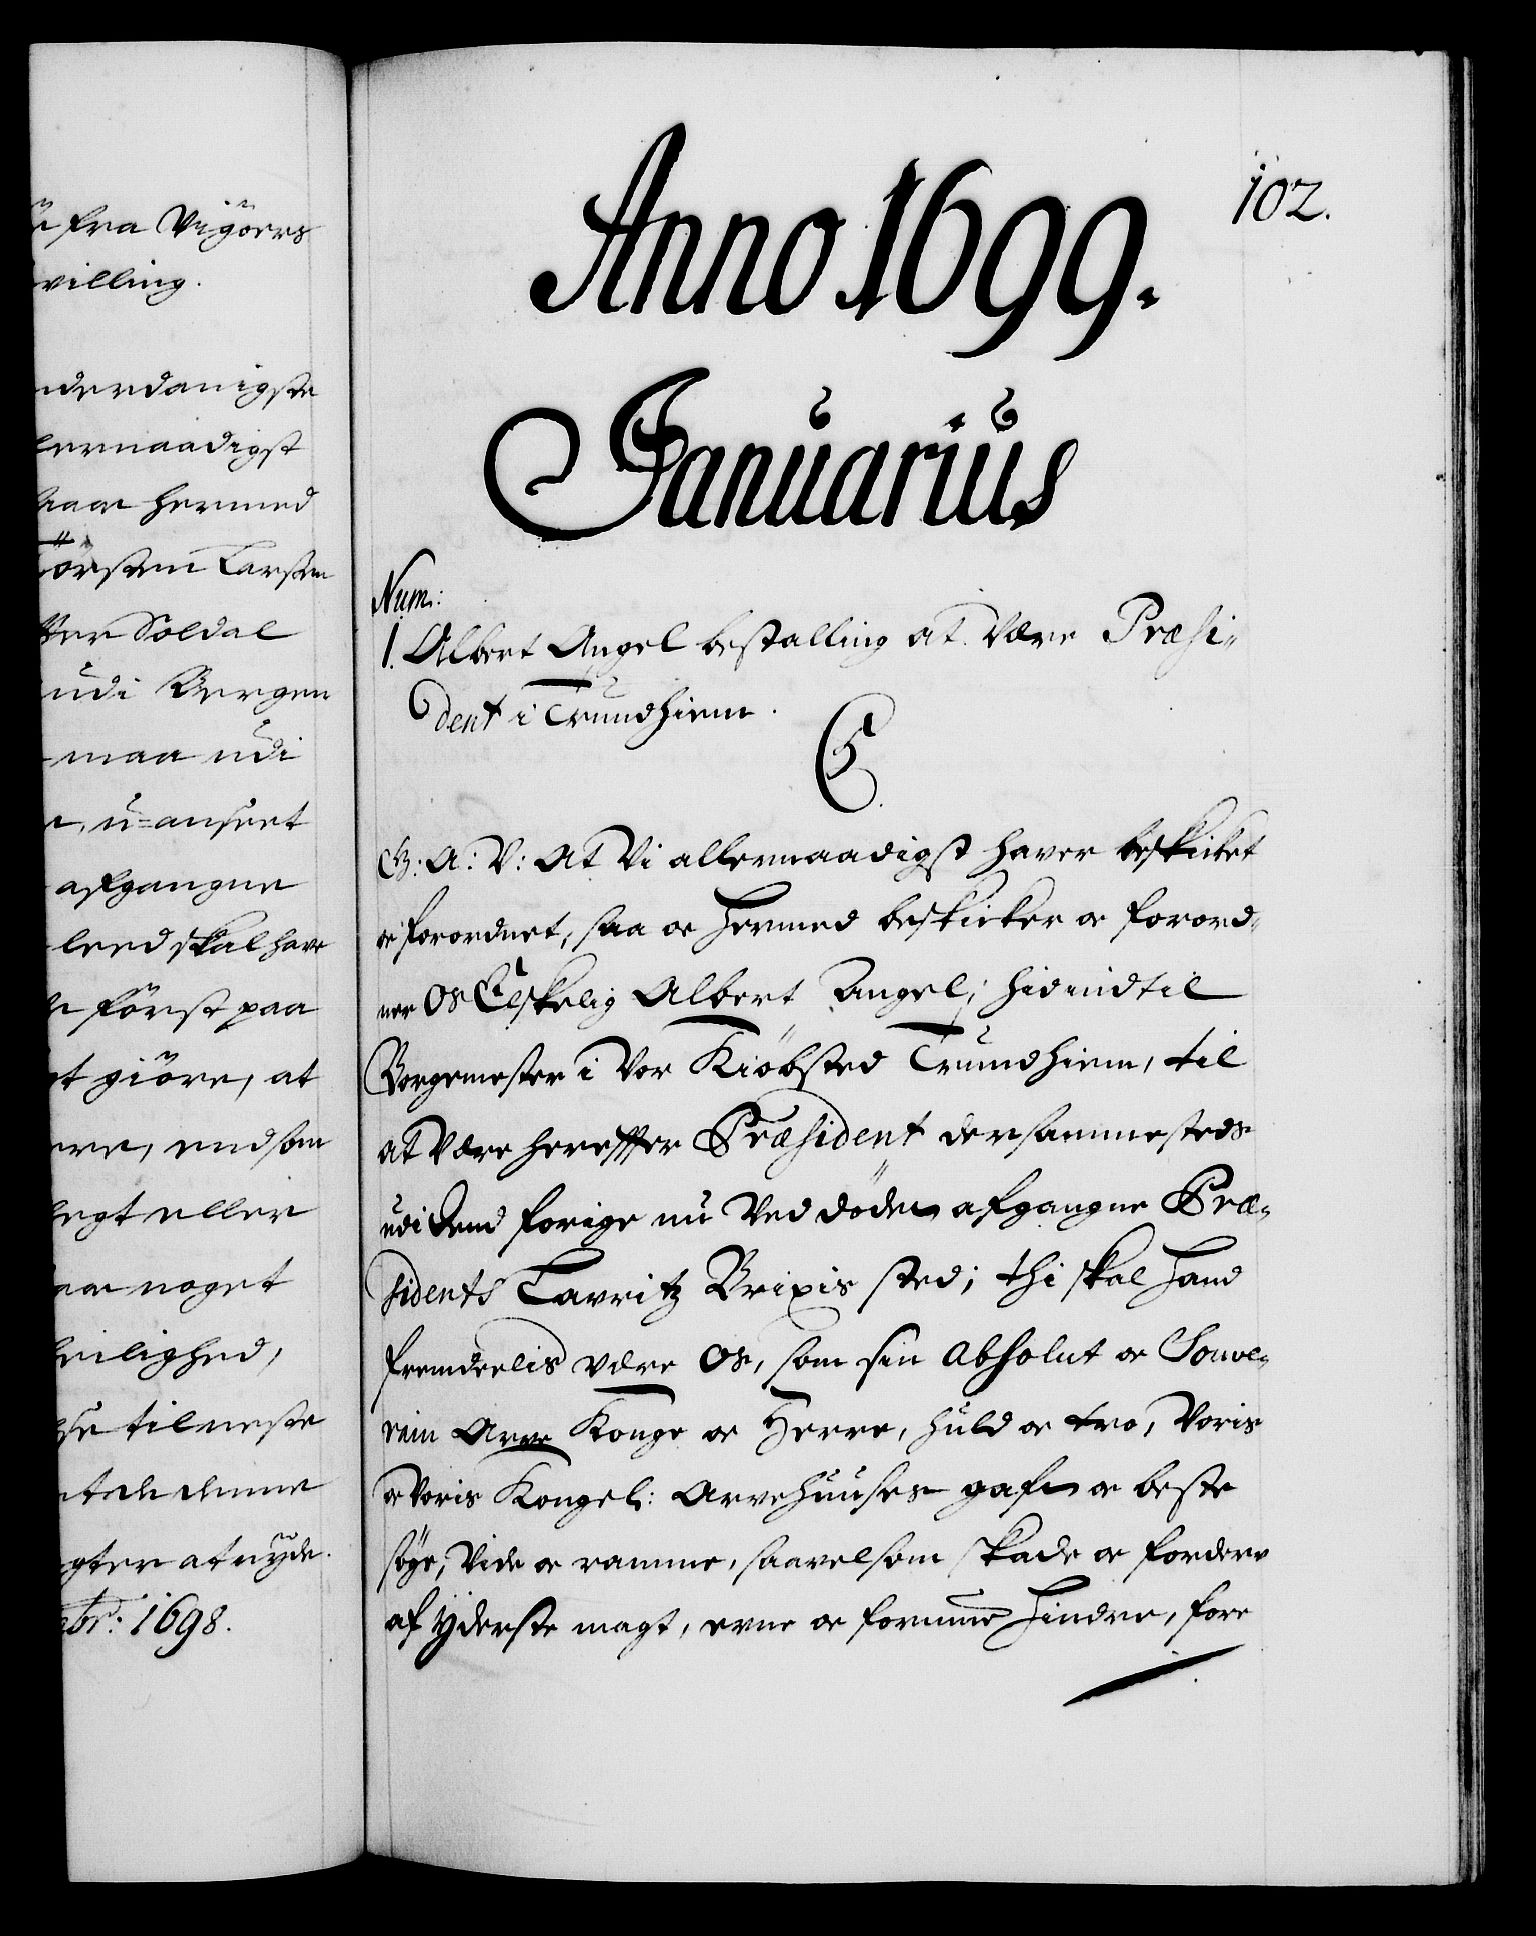 n fra Vigöers
villing.
nderdanigste
lernaadigst
naar hermed
örsten Larsen
ter Soldat
udi Bergen
maa udi
r, u-anseet
afgangne
leed skal have
n först paa
et giöre, at
ere, end som
legt eller
aar noget
leilighed,
se til neste
gter at nyde.
br: 1698.
102.
Anno 1699.
Januarius
Num:
1. Albert Angel bestalling at være Præsi-
dent i Trundhiem.
C5
G: A: V: At Vi allernaadigst haver beskicket
oc forordnet, saa oc hermed beskicker oc forord-
ner Os Elskelig Albert Angel, hidindtil
Borgemester i Vor Kiöbsted Trundhiem, til
at være herefter Præsident dersammesteds
udi dend forige nu ved döden afgangne Præ-
sidents Lavritz Brixis sted; thi skal hand
fremdeelis være Os, som sin Absolut oc Souve-
rain Arve Konge oc Herre, huld oc tro, Voris
oc Voris Kongel: Arvehuuses gafn oc beste
söge, vide oc ramme, saavelsom skade oc forderv
af yderste magt, evne oc formue hindre, fore